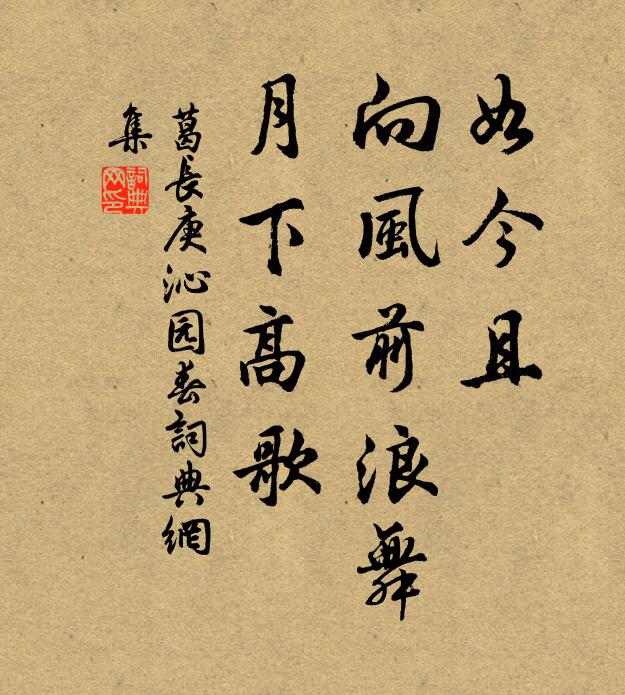 如今且
向風前浪舞
月下高歌
葛長庚沁园春詞典網
集
詞典
网印